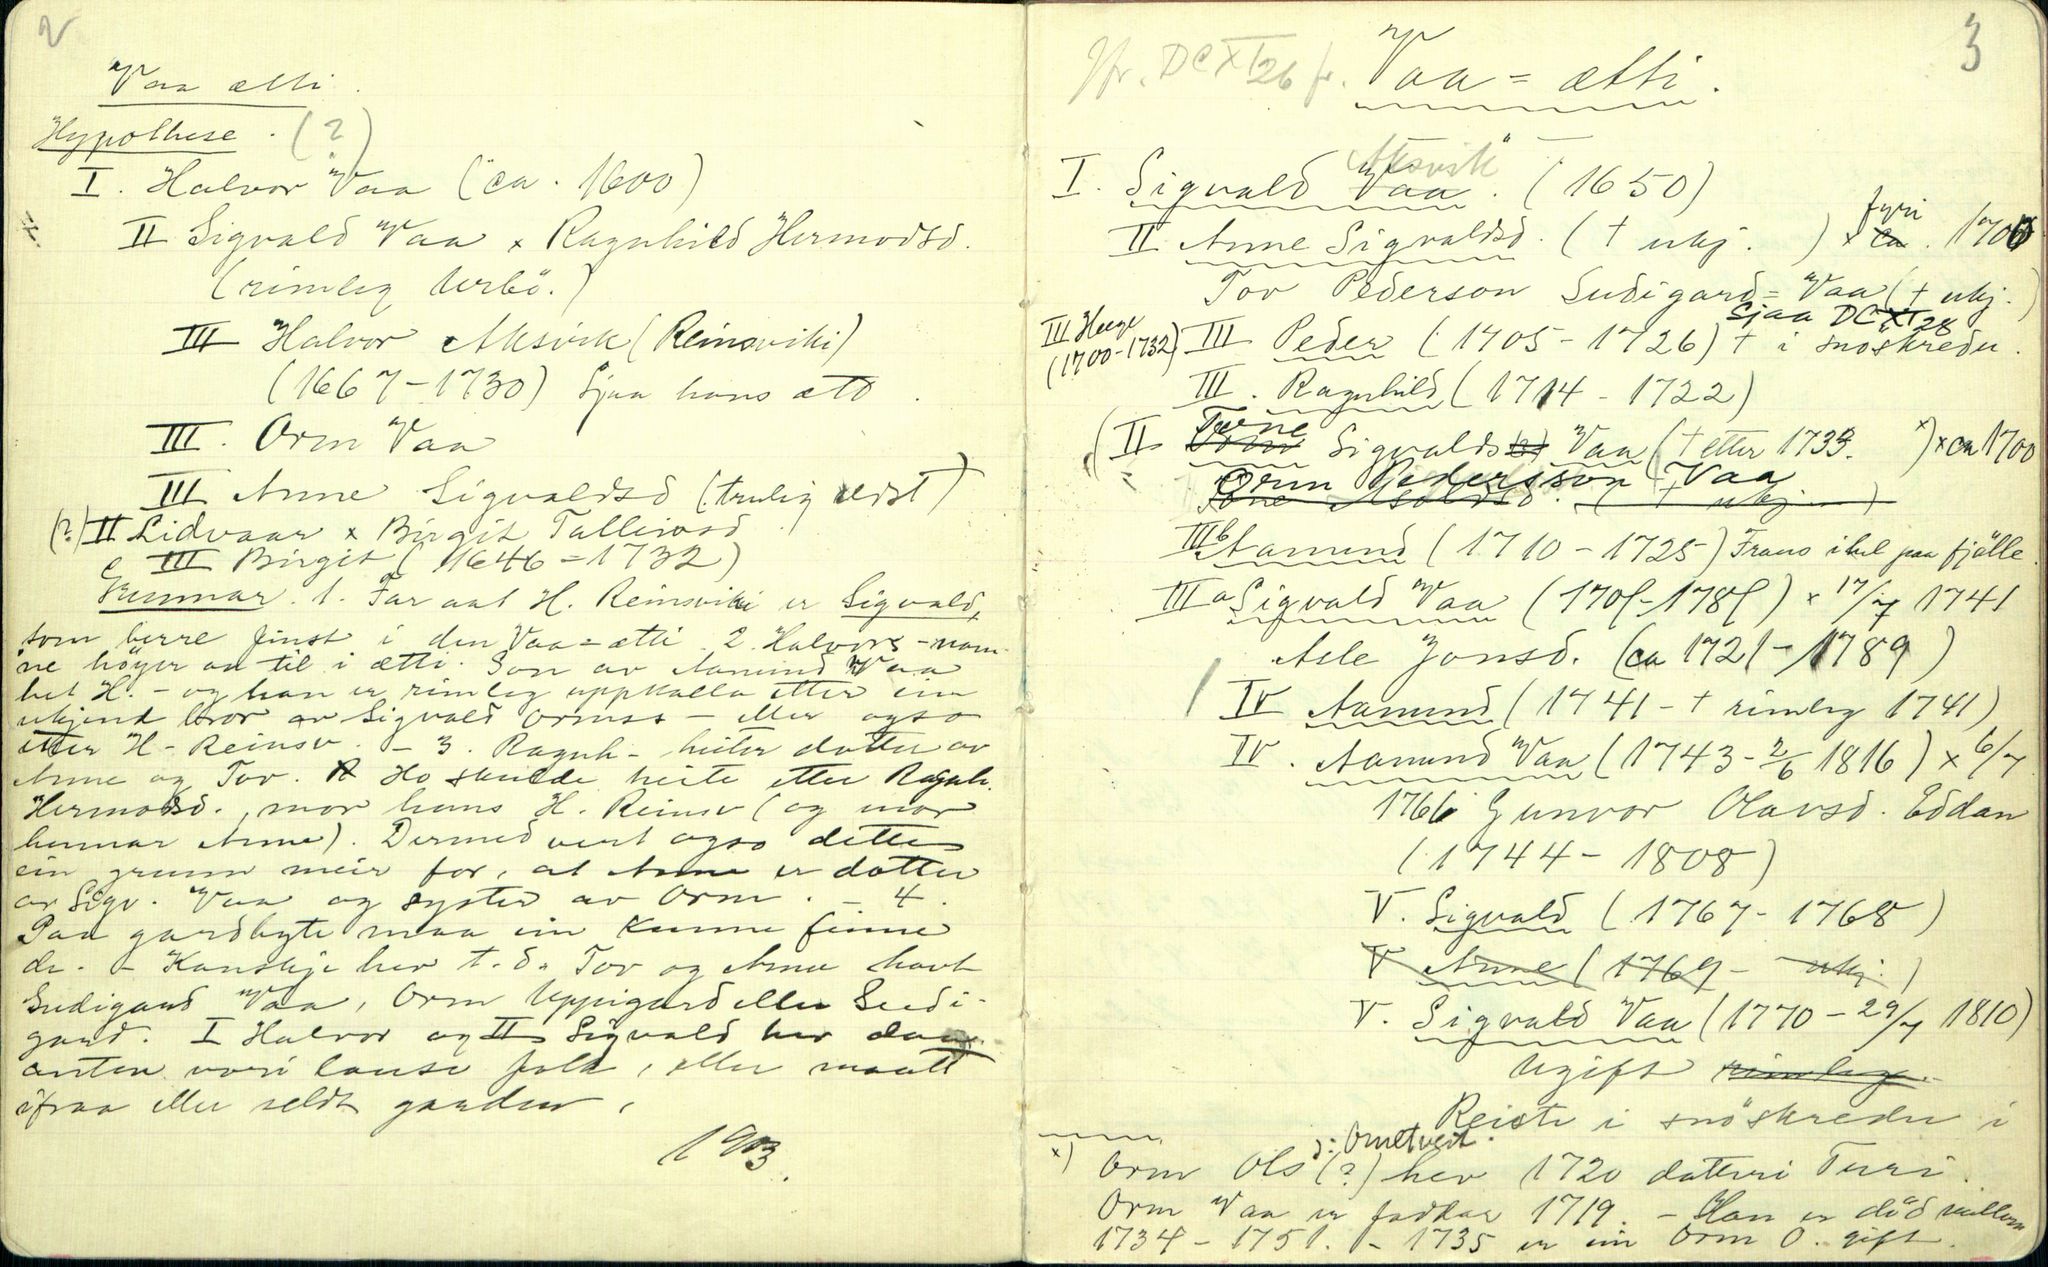 2
Vaa ætti.
Hypothese. (?)
I. Halvor Vaa (ca. 1600)
II Sigvald Vaa x Ragnhild Hermodsd.
(rimleg Urbö.)
III Halvor Aksvik (Reinsviki)
(1667-1730) Sjaa hans ætt.
III. Orm Vaa
III Anne Sigvaldsd (truleg eldst)
(?) II Lidvaar x Birgit Talleivsd
III Birgit (1646-1732)
Gunnar. 1. Far aat H. Reinsviki er Sigvald,
som berre finst i den Vaa-ætti. 2. Halvors-nam-
ne höyrer au til i ætti. Son av Aamund Vaa
het H. - og han er rimleg uppkalla etter ein
ukjend bror av Sigvald Ormss - eller ogso
etter H. Reinsv. - 3. Ragnh. heiter dotter av
Anne og Tov. Ho skulde heite etter Ragnh.
Hermodsd., mor hans H. Reinsv (og mor
hennar Anne). Dermed vert ogso dette
ein grunn meir for, at Anne er dotter
av Sigv. Vaa og syster av Orm. - 4.
Paa gardbyte maa ein kunne finne
de. - Kanskje hev t.d. Tov og Anne havt
Sudigard Vaa, Orm Uppigard eller Sudi-
gard. I Halvor og II Sigvald hev daa
anten vori lause folk, eller maatt
ifraa eller seldt garden.
1903.
3
Jfr. DC XI 26 fr. Vaa-ætti.
Aksvik
I. Sigvald Vaa. (1650)
II Anne Sigvaldsd. († ukj. ) x ca. fyri 1700
Tov Pederson Sudigard-Vaa († ukj.)
Sjaa DC XI 28
III Hæge
(1700-1732)
III Peder (1705-1726) † i snöskreder.
III. Ragnhild (1714-1722)
(II Torne Sigvalds Vaa († etter 1733. x) x ca 1700
Orm Pedersson Vaa
III b Aamund (1710-1725) Fraus ihel paa fjölle.
III a Sigvald Vaa (1705-1785) x 17/7 1741
Asle Jonsd. (ca 1721-1789)
IV Aamund (1741 - † rimleg 1741)
IV. Aamund Vaa (1743 - 2/6 1816) x 6/7
1766 Gunvor Olavsd. Eddan
(1744-1808)
V. Sigvald (1767-1768)
V Anne (1769 - ukj.)
V. Sigvald Vaa (1770 - 29/7 1810)
Ugift rimleg.
Reiste i snöskreder i
x) Orm Ols (?) ɔ: Ometveit. hev 1720 dotteri Turi.
Orm Vaa er fadder 1719. - Han er död millom
1734 - 1751. - 1735 er ein Orm O. gift.